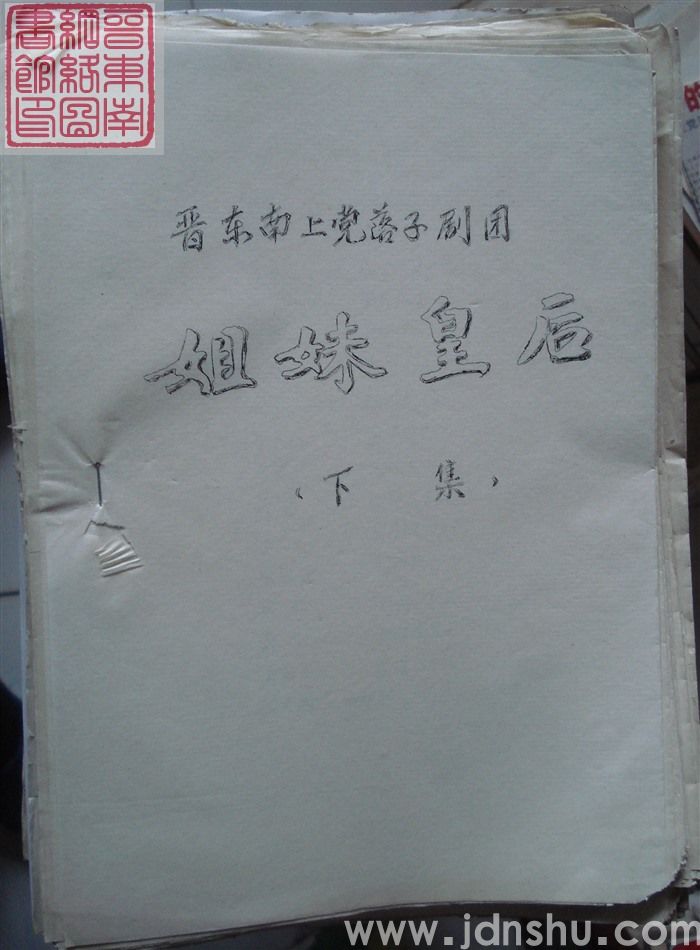 晋东南网络图书馆印
晋东南上党落子剧团
姐妹皇后
（下集）
的
www.jdnshu.com